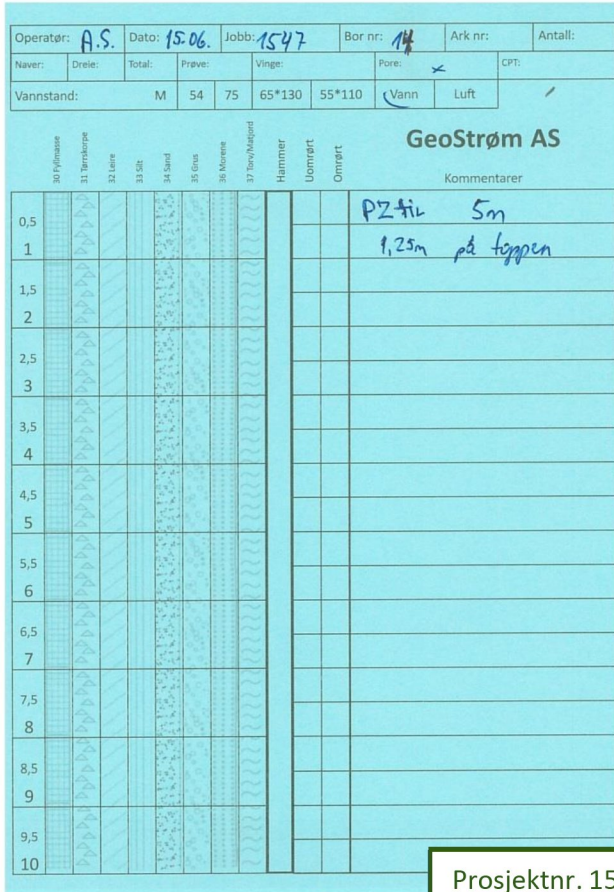 Operatør: A.S. Dato: 15.06. Jobb: 1547 Bor nr: 14 Ark nr: Antall:
Naver: Dreie: Total: Prøve: Vinge: Pore: x CPT:
Vannstand: M 54 75 65*130 55*110 Vann Luft
30 Fyllmasse
31 Tørrskorpe
32 Leire
33 Silt
34 Sand
35 Grus
36 Morene
37 Torv/Matjord
Hammer
Uomrørt
Omrørt
GeoStrøm AS
Kommentarer
PZ til 5m
0,5
1,25m på toppen
1
1,5
2
2,5
3
3,5
4
4,5
5
5,5
6
6,5
7
7,5
8
8,5
9
9,5
10
Prosjektnr. 15